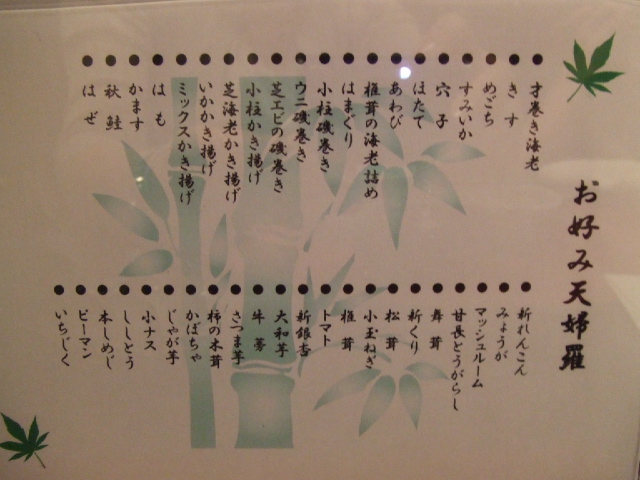 お好み天婦羅
才巻き海老
きす
めごち
すみいか
穴子
ほたて
あわび
椎茸の海老詰め
はまぐり
小柱磯巻き
ウニ磯巻き
芝エビの磯巻き
小柱かき揚げ
芝海老かき揚げ
いかかき揚げ
ミックスかき揚げ
はも
かます
秋鮭
はぜ
新れんこん
みょうが
マッシュルーム
甘長とうがらし
舞茸
新くり
松茸
小玉ねぎ
椎茸
トマト
新銀杏
大和芋
牛蒡
さつま芋
柿の木茸
かぼちゃ
じゃが芋
小ナス
ししとう
本しめじ
ピーマン
いちじく